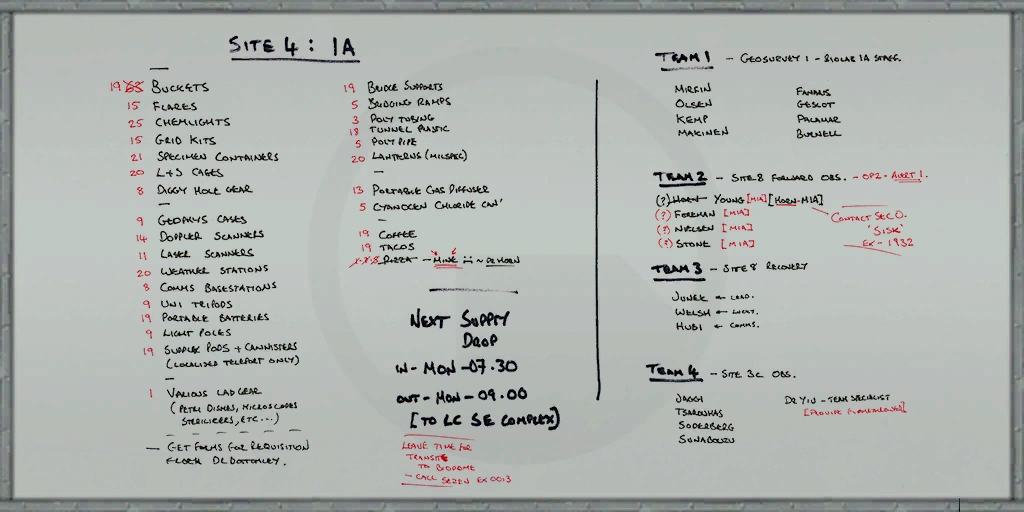 SITE 4 : 1A
19 65 BUCKETS
15 FLARES
25 CHEMLIGHTS
15 GRID KITS
21 SPECIMEN CONTAINERS
20 L+D CASES
8 DIGGY HOLE GEAR
9 GEOPHYS CASES
14 DOPPLER SCANNERS
11 LASER SCANNERS
20 WEATHER STATIONS
8 COMMS BASESTATIONS
9 UNI TRIPODS
19 PORTABLE BATTERIES
9 LIGHT POLES
19 SUPPLY PODS + CANNISTERS
(LOCALISED TELEPORT ONLY)
1 VARIOUS LAB GEAR
(PETRI DISHES, MICROSCOPES
STERILICERS, ETC...)
— GET FORMS FOR REQUISITION
FROM DR
19 BRIDGE SUPPORTS
5 BRIDGING RAMPS
3 POLY TUBING
18 TUNNEL PLASTIC
5 POLY PIPE
20 LANTERNS (MILSPEC)
13 PORTABLE GAS DIFFUSER
5 CYANOGEN CHLORIDE CAN'
19 COFFEE
19 TACOS
PIZZA - MINE ~ DR HORN
NEXT SUPPLY
DROP
IN - MON - 07.30
OUT - MON - 09.00
[TO LC SE COMPLEX]
LEAVE TIME FOR
TRANSIT
TO BIODOME
- CALL SEZEN EX 0013
TEAM 1 - GEOSURVEY 1 - BIOLAB 1A STAFF.
MIRFIN
OLSEN
KEMP
MAKINEN
GESLOT
PALAMAR
BURNELL
TEAM 2 - SITE 8 FORWARD OBS. - OP2 - ALERT 1.
(?) HORN YOUNG [MIA] [HORN - MIA]
(?) FOREMAN [MIA]
(?) NIELSEN [MIA]
(?) STONE [MIA]
CONTACT SEC O.
'SISK'
EX - 1932
TEAM 3 - SITE 8 RECOVERY
JUNEK ← LEAD.
WELSH ← LUCKY.
HUBI ← COMMS.
TEAM 4 - SITE 3C OBS.
JAGGI
TSAROUHAS
SODERBERG
SUNABOUZU
DR YIU - TEAM SPECIALIST